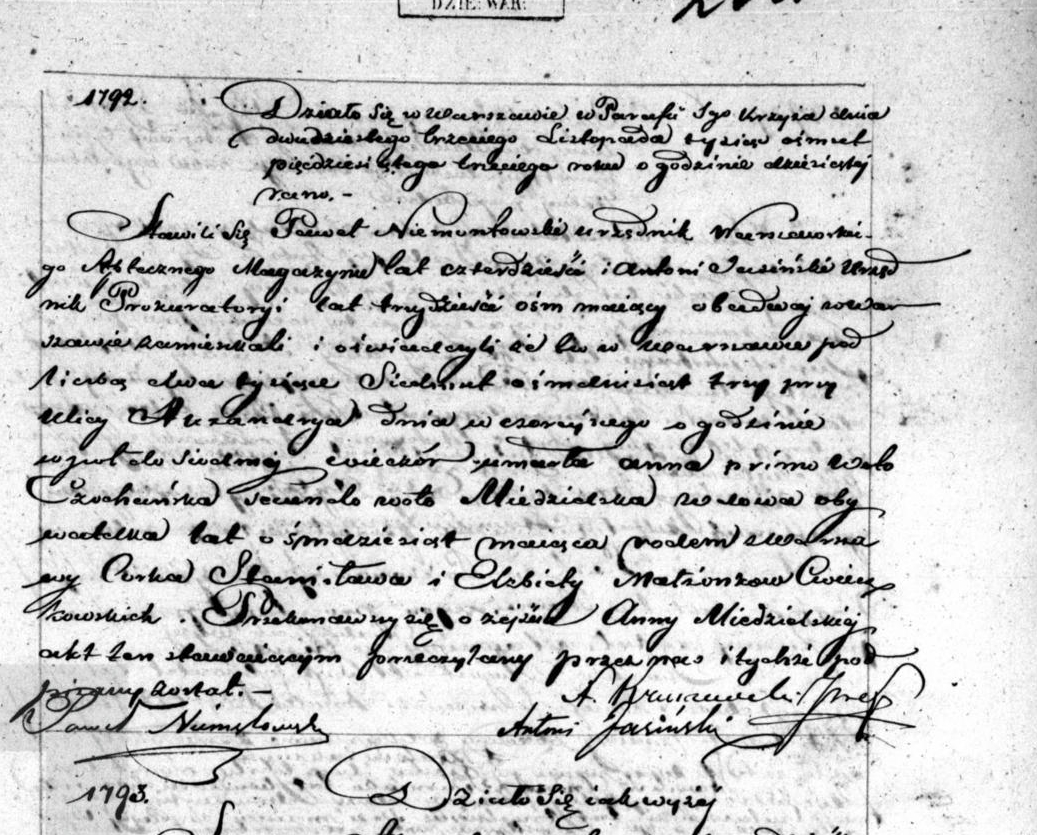 DZIEŁ: WAR:
1792.
Działo się w Warszawie w Parafii Sgo Krzyża dnia
dwudziestego trzeciego Listopada tysiąc ośmset
pięćdziesiątego trzeciego roku o godzinie dziesiątej
rano. –
Stawili się Paweł Niemsłowski urzędnik Warszawskie-
go Aptecznego Magazynu lat czterdzieści i Antoni Jasiński Urzęd
nik Prokuratoryi lat trzydzieści ośm maiący obydwaj w War
szawie zamieszkali i oświadczyli że tu w Warszawie pod
liczbą dwa tysiące Siedmset ośmdziesiąt trzy przy
ulicy Alexandrya dnia wczorajszego o godzinie
w pół do siódmej wieczór umarła Anna primo voto
secundo voto Miedzielska wdowa oby
watelka lat ośmdziesiąt maiąca rodem z Warsza
wy Córka Stanisława i Elżbiety Małżonków
kowskich. Przekonawszy się o zejściu Anny Miedzielskiej
akt ten stawaiącym przeczytany przez nas i tychże pod
pisany został. –
A.
Paweł Niemsłowski Antoni Jasiński
1793. Działo się iak wyżej